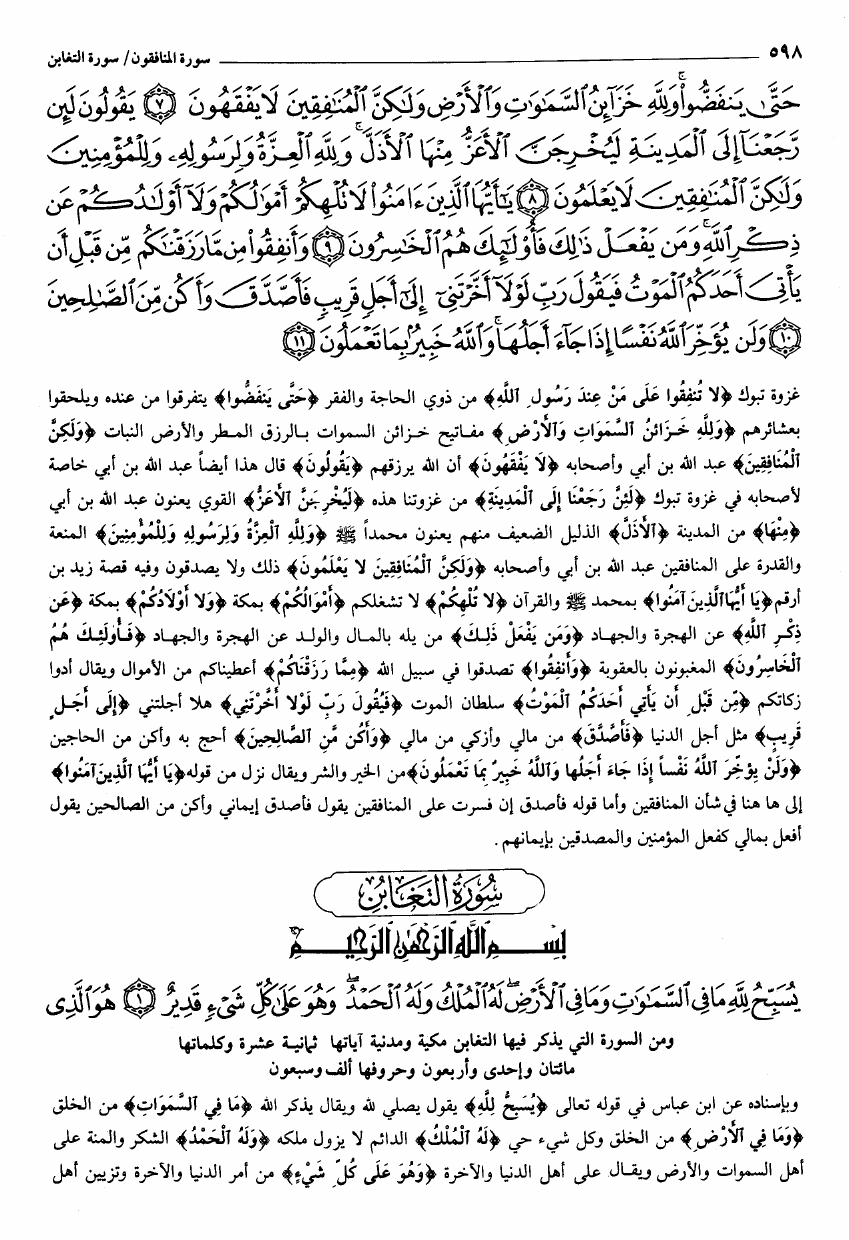 ٥٩٨
سورة المنافقون/ سورة التغابن
حَتَّىٰ يَنفَضُّوا۟ ۗ وَلِلَّهِ خَزَآئِنُ ٱلسَّمَٰوَٰتِ وَٱلْأَرْضِ وَلَٰكِنَّ ٱلْمُنَٰفِقِينَ لَا يَفْقَهُونَ ﴿٧﴾ يَقُولُونَ لَئِن
رَّجَعْنَآ إِلَى ٱلْمَدِينَةِ لَيُخْرِجَنَّ ٱلْأَعَزُّ مِنْهَا ٱلْأَذَلَّ ۚ وَلِلَّهِ ٱلْعِزَّةُ وَلِرَسُولِهِۦ وَلِلْمُؤْمِنِينَ
وَلَٰكِنَّ ٱلْمُنَٰفِقِينَ لَا يَعْلَمُونَ ﴿٨﴾ يَٰٓأَيُّهَا ٱلَّذِينَ ءَامَنُوا۟ لَا تُلْهِكُمْ أَمْوَٰلُكُمْ وَلَآ أَوْلَٰدُكُمْ عَن
ذِكْرِ ٱللَّهِ ۚ وَمَن يَفْعَلْ ذَٰلِكَ فَأُو۟لَٰٓئِكَ هُمُ ٱلْخَٰسِرُونَ ﴿٩﴾ وَأَنفِقُوا۟ مِن مَّا رَزَقْنَٰكُم مِّن قَبْلِ أَن
يَأْتِىَ أَحَدَكُمُ ٱلْمَوْتُ فَيَقُولَ رَبِّ لَوْلَآ أَخَّرْتَنِىٓ إِلَىٰٓ أَجَلٍ قَرِيبٍ فَأَصَّدَّقَ وَأَكُن مِّنَ ٱلصَّٰلِحِينَ
﴿١٠﴾ وَلَن يُؤَخِّرَ ٱللَّهُ نَفْسًا إِذَا جَآءَ أَجَلُهَا ۚ وَٱللَّهُ خَبِيرٌۢ بِمَا تَعْمَلُونَ ﴿١١﴾
غزوة تبوك ﴿لا تُنفِقُوا عَلَى مَنْ عِندَ رَسُولِ ٱللَّهِ﴾ من ذوي الحاجة والفقر ﴿حَتَّى يَنفَضُّوا﴾ يتفرقوا من عنده ويلحقوا
بعشائرهم ﴿وَلِلَّهِ خَزَائنُ ٱلسَّمَوَاتِ وَٱلْأَرْضِ﴾ مفاتيح خزائن السموات بالرزق المطر والأرض النبات ﴿وَلَكِنَّ
ٱلْمُنَافِقِينَ﴾ عبد الله بن أبي وأصحابه ﴿لَا يَفْقَهُونَ﴾ أن الله يرزقهم ﴿يَقُولُونَ﴾ قال هذا أيضاً عبد الله بن أبي خاصة
لأصحابه في غزوة تبوك ﴿لَئِنْ رَجَعْنَا إِلَى ٱلْمَدِينَةِ﴾ من غزوتنا هذه ﴿لَيُخْرِجَنَّ ٱلْأَعَزُّ﴾ القوي يعنون عبد الله بن أبي
﴿مِنْهَا﴾ من المدينة ﴿ٱلْأَذَلَّ﴾ الذليل الضعيف منهم يعنون محمداً ﷺ ﴿وَلِلَّهِ ٱلْعِزَّةُ وَلِرَسُولِهِ وَلِلْمُؤْمِنِينَ﴾ المنعة
والقدرة على المنافقين عبد الله بن أبي وأصحابه ﴿وَلَكِنَّ ٱلْمُنَافِقِينَ لا يَعْلَمُونَ﴾ ذلك ولا يصدقون وفيه قصة زيد بن
أرقم ﴿يَا أَيُّهَا ٱلَّذِينَ آمَنُوا﴾ بمحمد ﷺ والقرآن ﴿لا تُلْهِكُمْ﴾ لا تشغلكم ﴿أَمْوَالُكُمْ﴾ بمكة ﴿وَلا أَوْلَادُكُمْ﴾ بمكة ﴿عَن
ذِكْرِ ٱللَّهِ﴾ عن الهجرة والجهاد ﴿وَمَن يَفْعَلْ ذَلِكَ﴾ من يله بالمال والولد عن الهجرة والجهاد ﴿فَأُولَئِكَ هُمُ
ٱلْخَاسِرُونَ﴾ المغبونون بالعقوبة ﴿وَأَنفِقُوا﴾ تصدقوا في سبيل الله ﴿مِمَّا رَزَقْنَاكُمْ﴾ أعطيناكم من الأموال ويقال أدوا
زكاتكم ﴿مِّن قَبْلِ أَن يَأْتِي أَحَدَكُمُ ٱلْمَوْتُ﴾ سلطان الموت ﴿فَيَقُولَ رَبِّ لَوْلا أَخَّرْتَنِي﴾ هلا أجلتني ﴿إِلَى أَجَلٍ
قَرِيبٍ﴾ مثل أجل الدنيا ﴿فَأَصَّدَّقَ﴾ من مالي وأزكي من مالي ﴿وَأَكُن مِّنَ ٱلصَّالِحِينَ﴾ أحج به وأكن من الحاجين
﴿وَلَنْ يُؤَخِّرَ ٱللَّهُ نَفْساً إِذَا جَاءَ أَجَلُها وَٱللَّهُ خَبِيرٌ بِمَا تَعْمَلُونَ﴾ من الخير والشر ويقال نزل من قوله ﴿يَا أَيُّهَا ٱلَّذِينَ آمَنُوا﴾
إلى ها هنا في شأن المنافقين وأما قوله فأصدق إن فسرت على المنافقين يقول فأصدق إيماني وأكن من الصالحين يقول
أفعل بمالي كفعل المؤمنين والمصدقين بإيمانهم .
سُورَةُ التَّغَابُنِ
بِسْمِ ٱللَّهِ ٱلرَّحْمَٰنِ ٱلرَّحِيمِ
يُسَبِّحُ لِلَّهِ مَا فِى ٱلسَّمَٰوَٰتِ وَمَا فِى ٱلْأَرْضِ ۖ لَهُ ٱلْمُلْكُ وَلَهُ ٱلْحَمْدُ ۖ وَهُوَ عَلَىٰ كُلِّ شَىْءٍ قَدِيرٌ ﴿١﴾ هُوَ ٱلَّذِى
ومن السورة التي يذكر فيها التغابن مكية ومدنية آياتها ثمانية عشرة وكلماتها
مائتان وإحدى وأربعون وحروفها ألف وسبعون
وبإسناده عن ابن عباس في قوله تعالى ﴿يُسَبِّحُ لِلَّهِ﴾ يقول يصلي لله ويقال يذكر الله ﴿مَا فِي ٱلسَّمَوَاتِ﴾ من الخلق
﴿وَمَا فِي ٱلْأَرْضِ﴾ من الخلق وكل شيء حي ﴿لَهُ ٱلْمُلْكُ﴾ الدائم لا يزول ملكه ﴿وَلَهُ ٱلْحَمْدُ﴾ الشكر والمنة على
أهل السموات والأرض ويقال على أهل الدنيا والآخرة ﴿وَهُوَ عَلَى كُلِّ شَيْءٍ﴾ من أمر الدنيا والآخرة وتزيين أهل